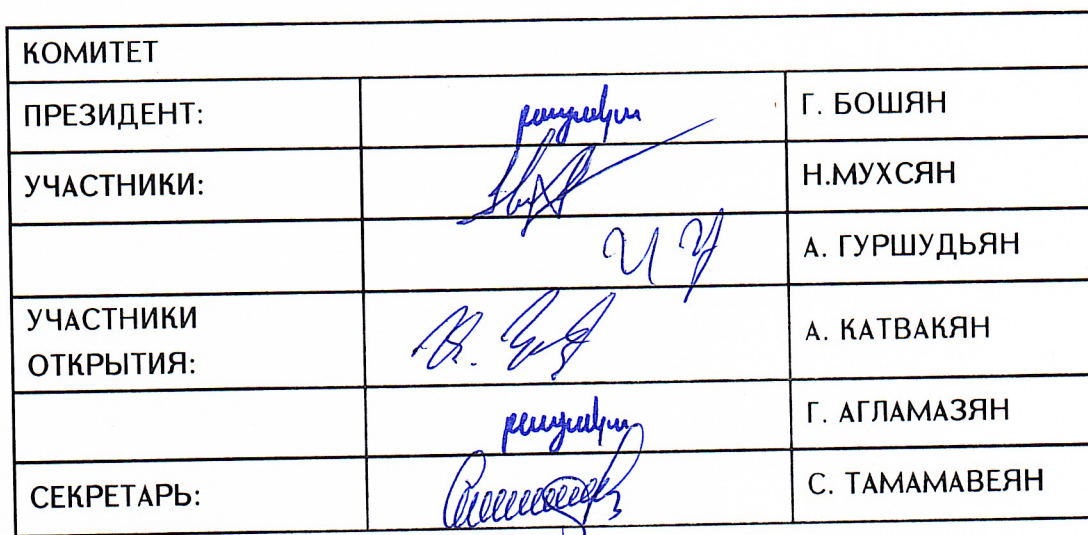 КОМИТЕТ
ПРЕЗИДЕНТ:
Г. БОШЯН
УЧАСТНИКИ:
Н.МУХСЯН
А. ГУРШУДЬЯН
УЧАСТНИКИ
ОТКРЫТИЯ:
А. КАТВАКЯН
Г. АГЛАМАЗЯН
СЕКРЕТАРЬ:
С. ТАМАМАВЕЯН